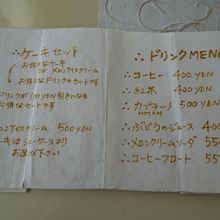 ∴ケーキセット
お好きなケーキ
or メロンアイスクリーム
お好きなドリンクのセットです
ドリンクが100YEN引きになる
お得なセットです
メロンアイスクリーム 500YEN
ケーキはショーケースより
お選び下さい
∴ドリンクMENU
∴コーヒー 400YEN
∴紅茶 400YEN
∴カプチーノ 500YEN
HOT・ICE
∴ぶどうのジュース 400
∴メロンクリームソーダ 55
∴コーヒーフロート 55